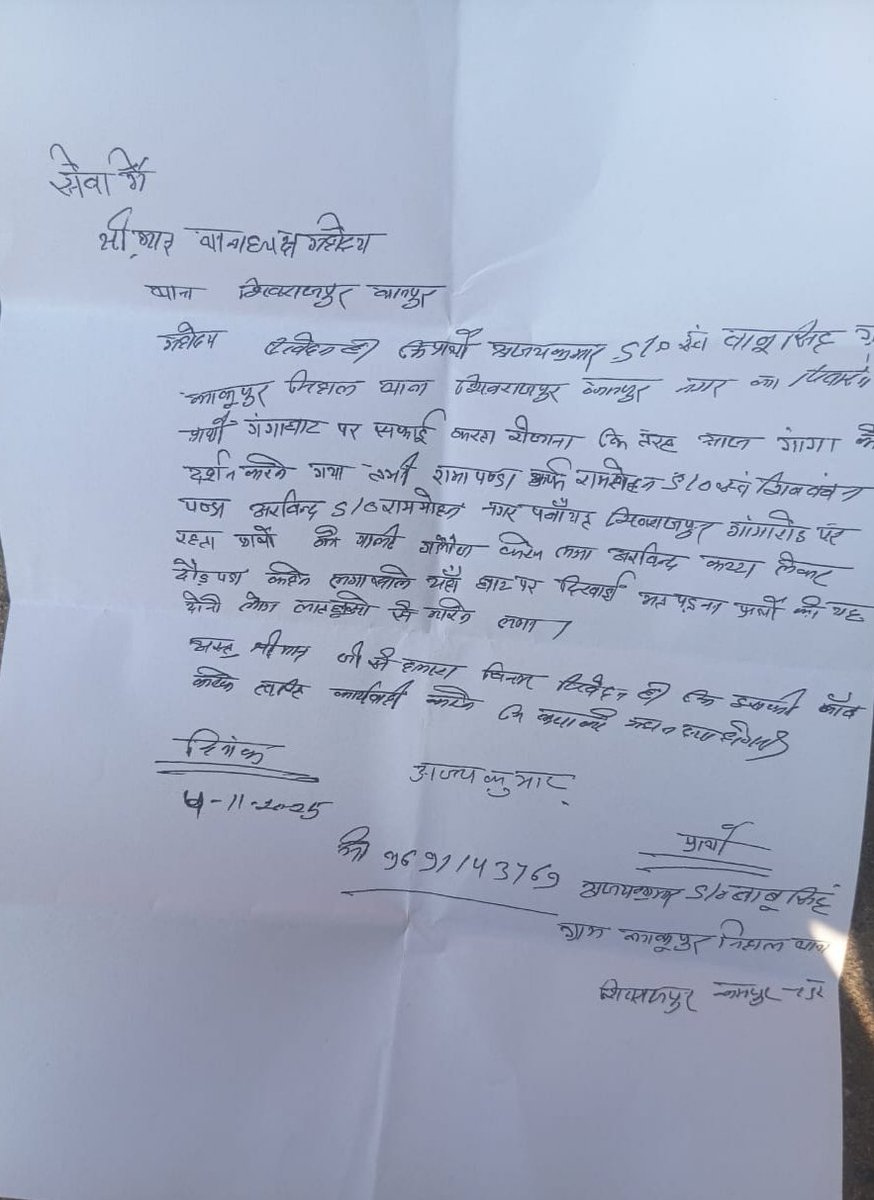 सेवा में
श्रीमान थानाध्यक्ष महोदय
थाना शिवराजपुर कानपुर
महोदय निवेदन है कि प्रार्थी अजयकुमार S/o स्व बाबू सिंह
काकूपुर निहाल थाना शिवराजपुर कानपुर नगर का निवासी
प्रार्थी गंगाघाट पर सफाई करता रोजाना कि तरह आज गंगा के
दर्शन करने गया तभी रामा पण्डा उर्फ राममोहन S/o स्व
पण्डा अरविन्द S/o राममोहन नगर पंचायत शिवराजपुर गंगारोड पर
रहता प्रार्थी को गाली गलौज करने लगा अरविन्द कट्टा लेकर
दौड़ पड़ा कहने लगा साले यहाँ घाट पर दिखाई मत पड़ना प्रार्थी को यह
दोनों लोग लात घूसो से मारने लगा।
अस्तु श्रीमान जी से हमारा विनम्र निवेदन है कि इसकी जाँच
करके त्वरित कार्यवाही करने कि कृपा करें
दिनांक
4-11-2025
अजय कुमार
मो 9691143769
प्रार्थी
अजयकुमार S/o बाबू सिंह
ग्राम काकूपुर निहाल थाना
शिवराजपुर कानपुर नगर